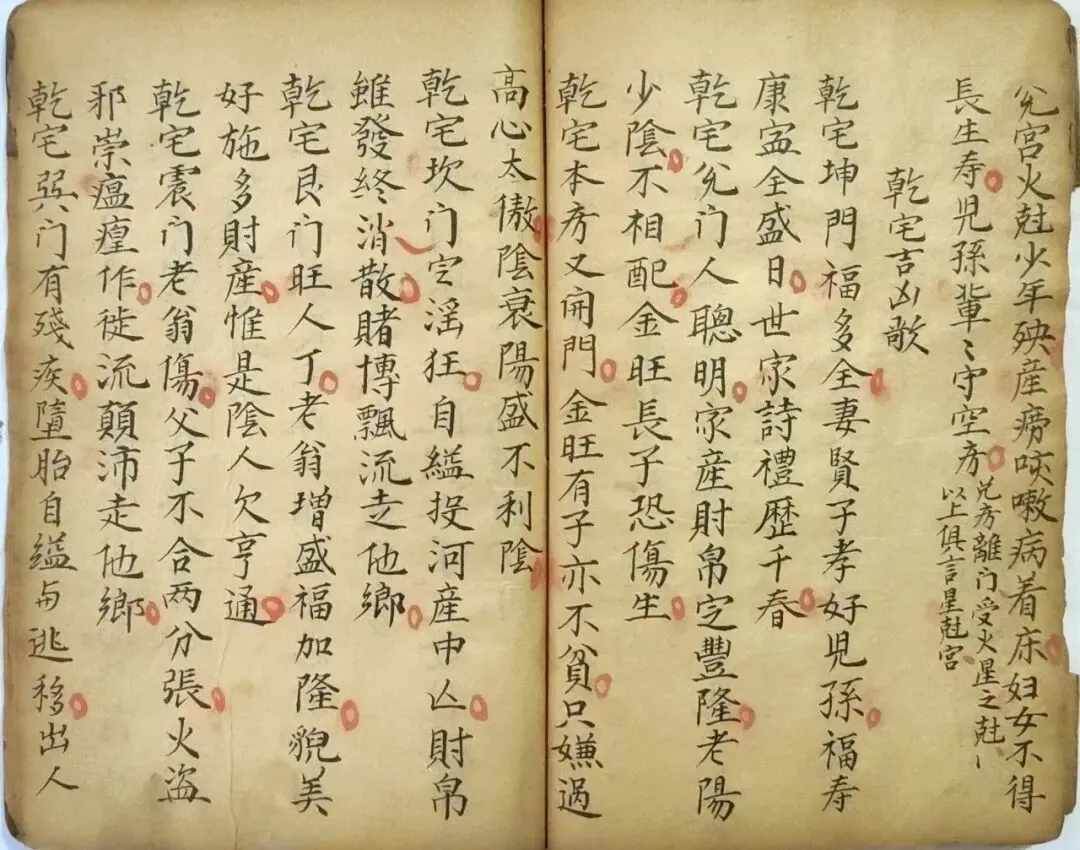 兊宮火尅少年殃産痨咳嗽病着床妇女不得
長生寿児孫輩〻守空房
兊房離门受火星之尅
以上俱言星尅宮
乾宅吉凶歌
乾宅坤門福多全妻賢子孝好児孫福寿
康寍全盛日世家詩禮歷千春
乾宅兊门人聰明家産財帛定豐隆老陽
少陰不相配金旺長子恐傷生
乾宅本房又開門金旺有子亦不貧只嫌過
高心太傲陰衰陽盛不利陰
乾宅坎门定滛狂自縊投河産中亾財帛
雖發终消散賭博飄流走他鄉
乾宅艮门旺人丁老翁增盛福加隆貌美
好施多財産惟是陰人欠亨通
乾宅震门老翁傷父子不合两分張火盗
邪崇瘟瘽作徙流顛沛走他鄉
乾宅巽门有殘疾墮胎自縊与逃移出人